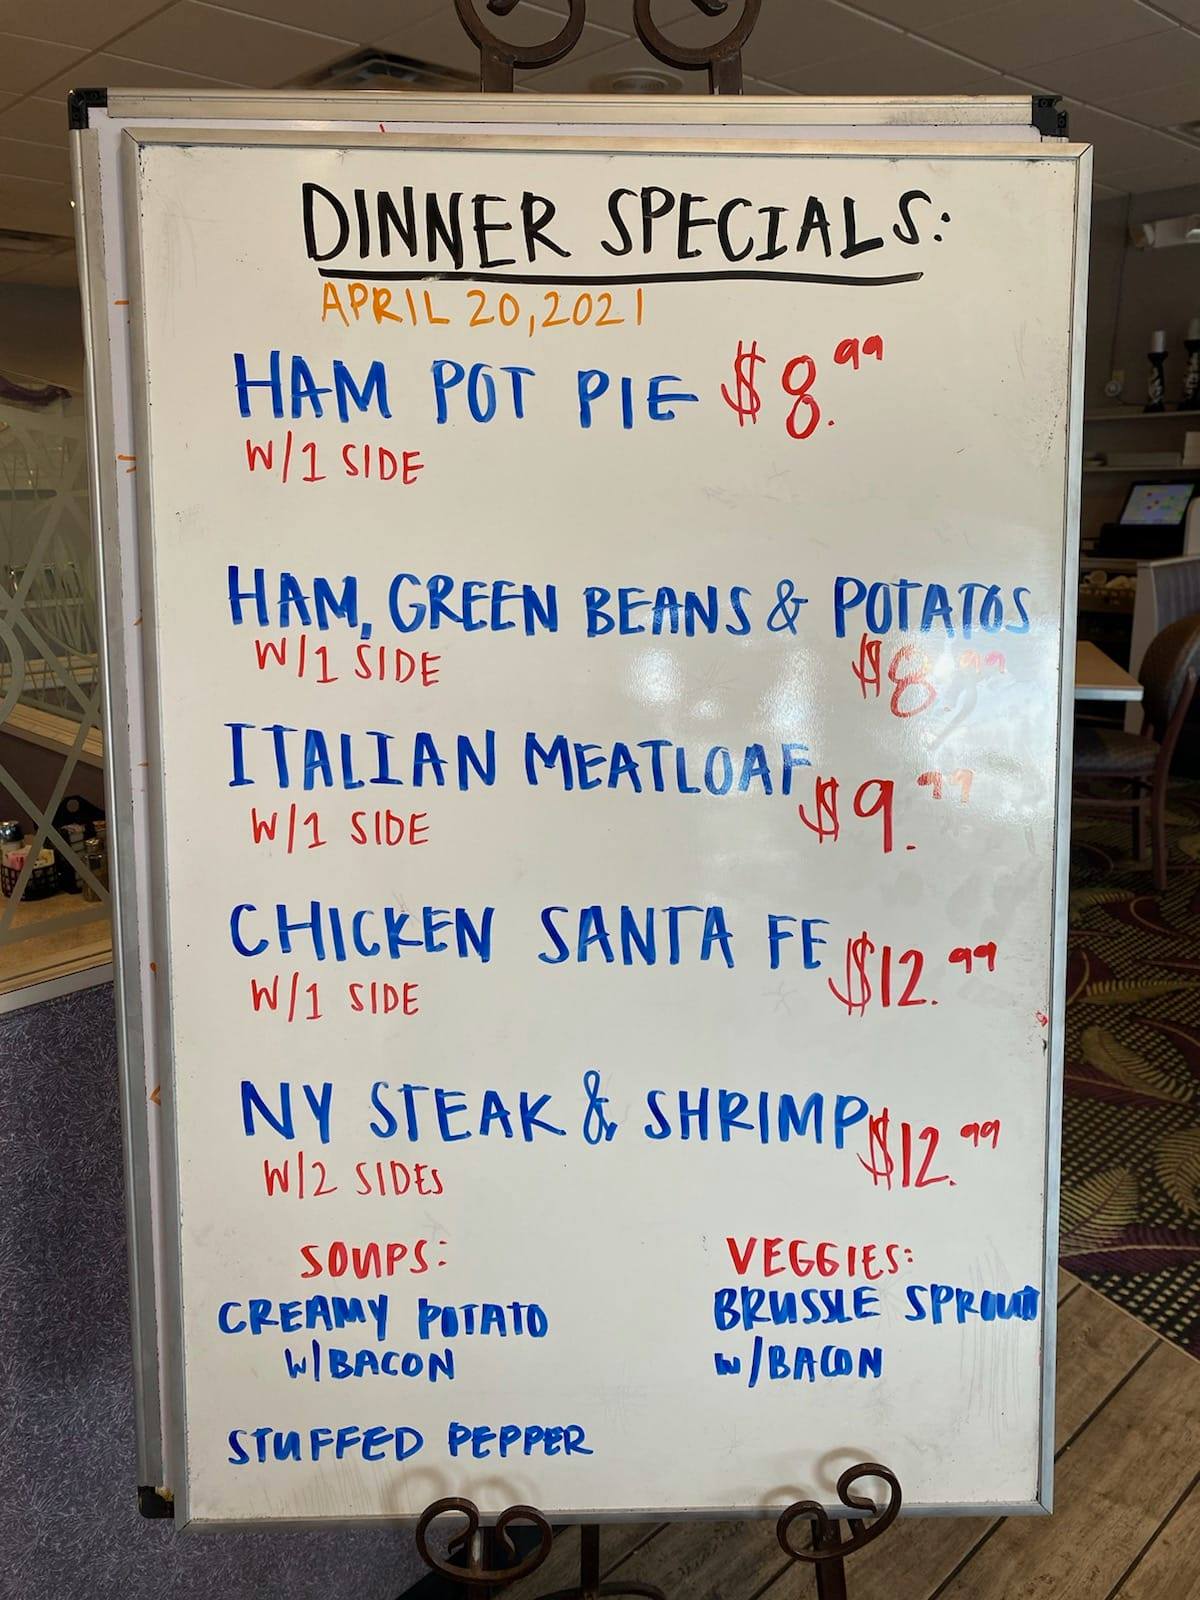 DINNER SPECIALS:
APRIL 20, 2021
HAM POT PIE $8.99
W/1 SIDE
HAM, GREEN BEANS & POTATOS
W/1 SIDE $8.99
ITALIAN MEATLOAF $9.99
W/1 SIDE
CHICKEN SANTA FE $12.99
W/1 SIDE
NY STEAK & SHRIMP $12.99
W/2 SIDES
SOUPS:
CREAMY POTATO
W/BACON
STUFFED PEPPER
VEGGIES:
BRUSSLE SPROUT
W/BACON